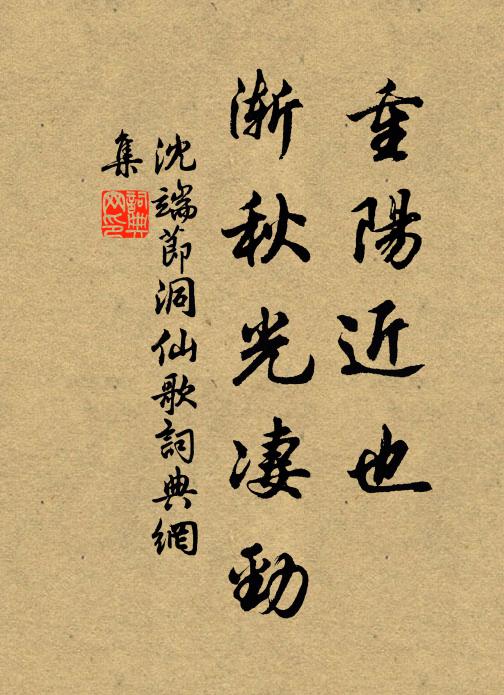 重陽近也
漸秋光凄勁
沈端節洞仙歌詞典網
集
詞典網印